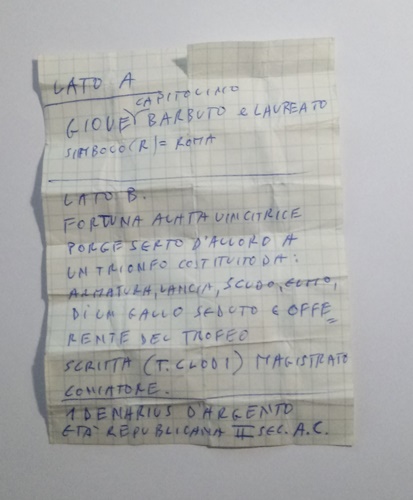 LATO A
CAPITOLINO
GIOVE BARBUTO e LAUREATO
SIMBOLO (R) = ROMA
LATO B.
FORTUNA ALATA VINCITRICE
PORGE SERTO D'ALLORO A
UN TRIONFO COSTITUITO DA:
ARMATURA, LANCIA, SCUDO, ELMO,
DI UN GALLO SEDUTO E OFFE=
RENTE DEL TROFEO
SCRITTA (T. CLODI) MAGISTRATO
CONIATORE.
1 DENARIUS D'ARGENTO
ETÀ REPUBLICANA II SEC. A.C.